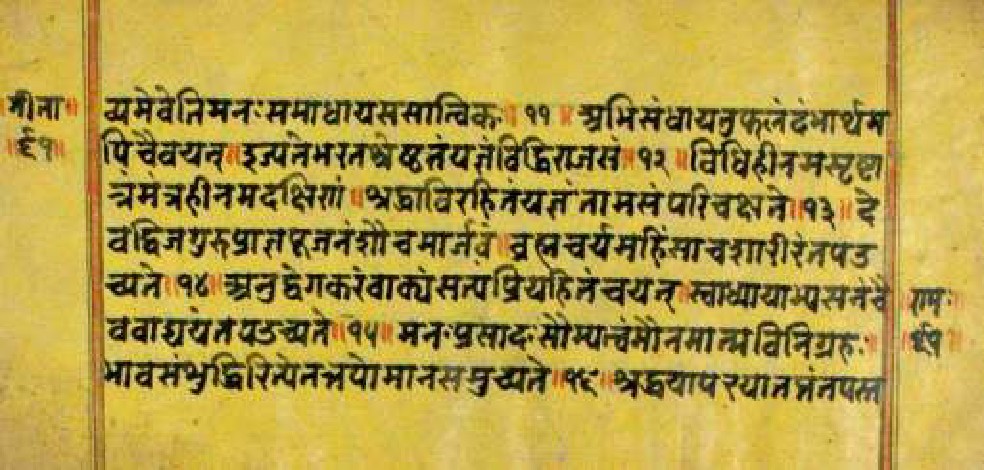 गीता॥
॥६१॥
व्यमेवेतिमनःसमाधायससात्विकः॥११॥अभिसंधायतुफलंदंभार्थम
पिचैवयत्॥इज्यतेभरतश्रेष्ठतंयज्ञंविद्धिराजसं॥१२॥विधिहीनमसृष्टा
न्नंमंत्रहीनमदक्षिणं॥श्रद्धाविरहितंयज्ञंतामसंपरिचक्षते॥१३॥दे
वद्विजगुरुप्राज्ञपूजनंशौचमार्जवं॥ब्रह्मचर्यमहिंसाचशारीरंतपउ
च्यते॥१४॥अनुद्वेगकरंवाक्यंसत्यप्रियहितंचयत्॥स्वाध्यायाभ्यसनंचै
ववाङ्मयंतपउच्यते॥१५॥मनःप्रसादःसौम्यत्वंमौनमात्मविनिग्रहः॥
भावसंशुद्धिरित्येतत्तपोमानसमुच्यते॥१६॥श्रद्धयापरयातप्तंतपस्त
रामः
॥६१॥